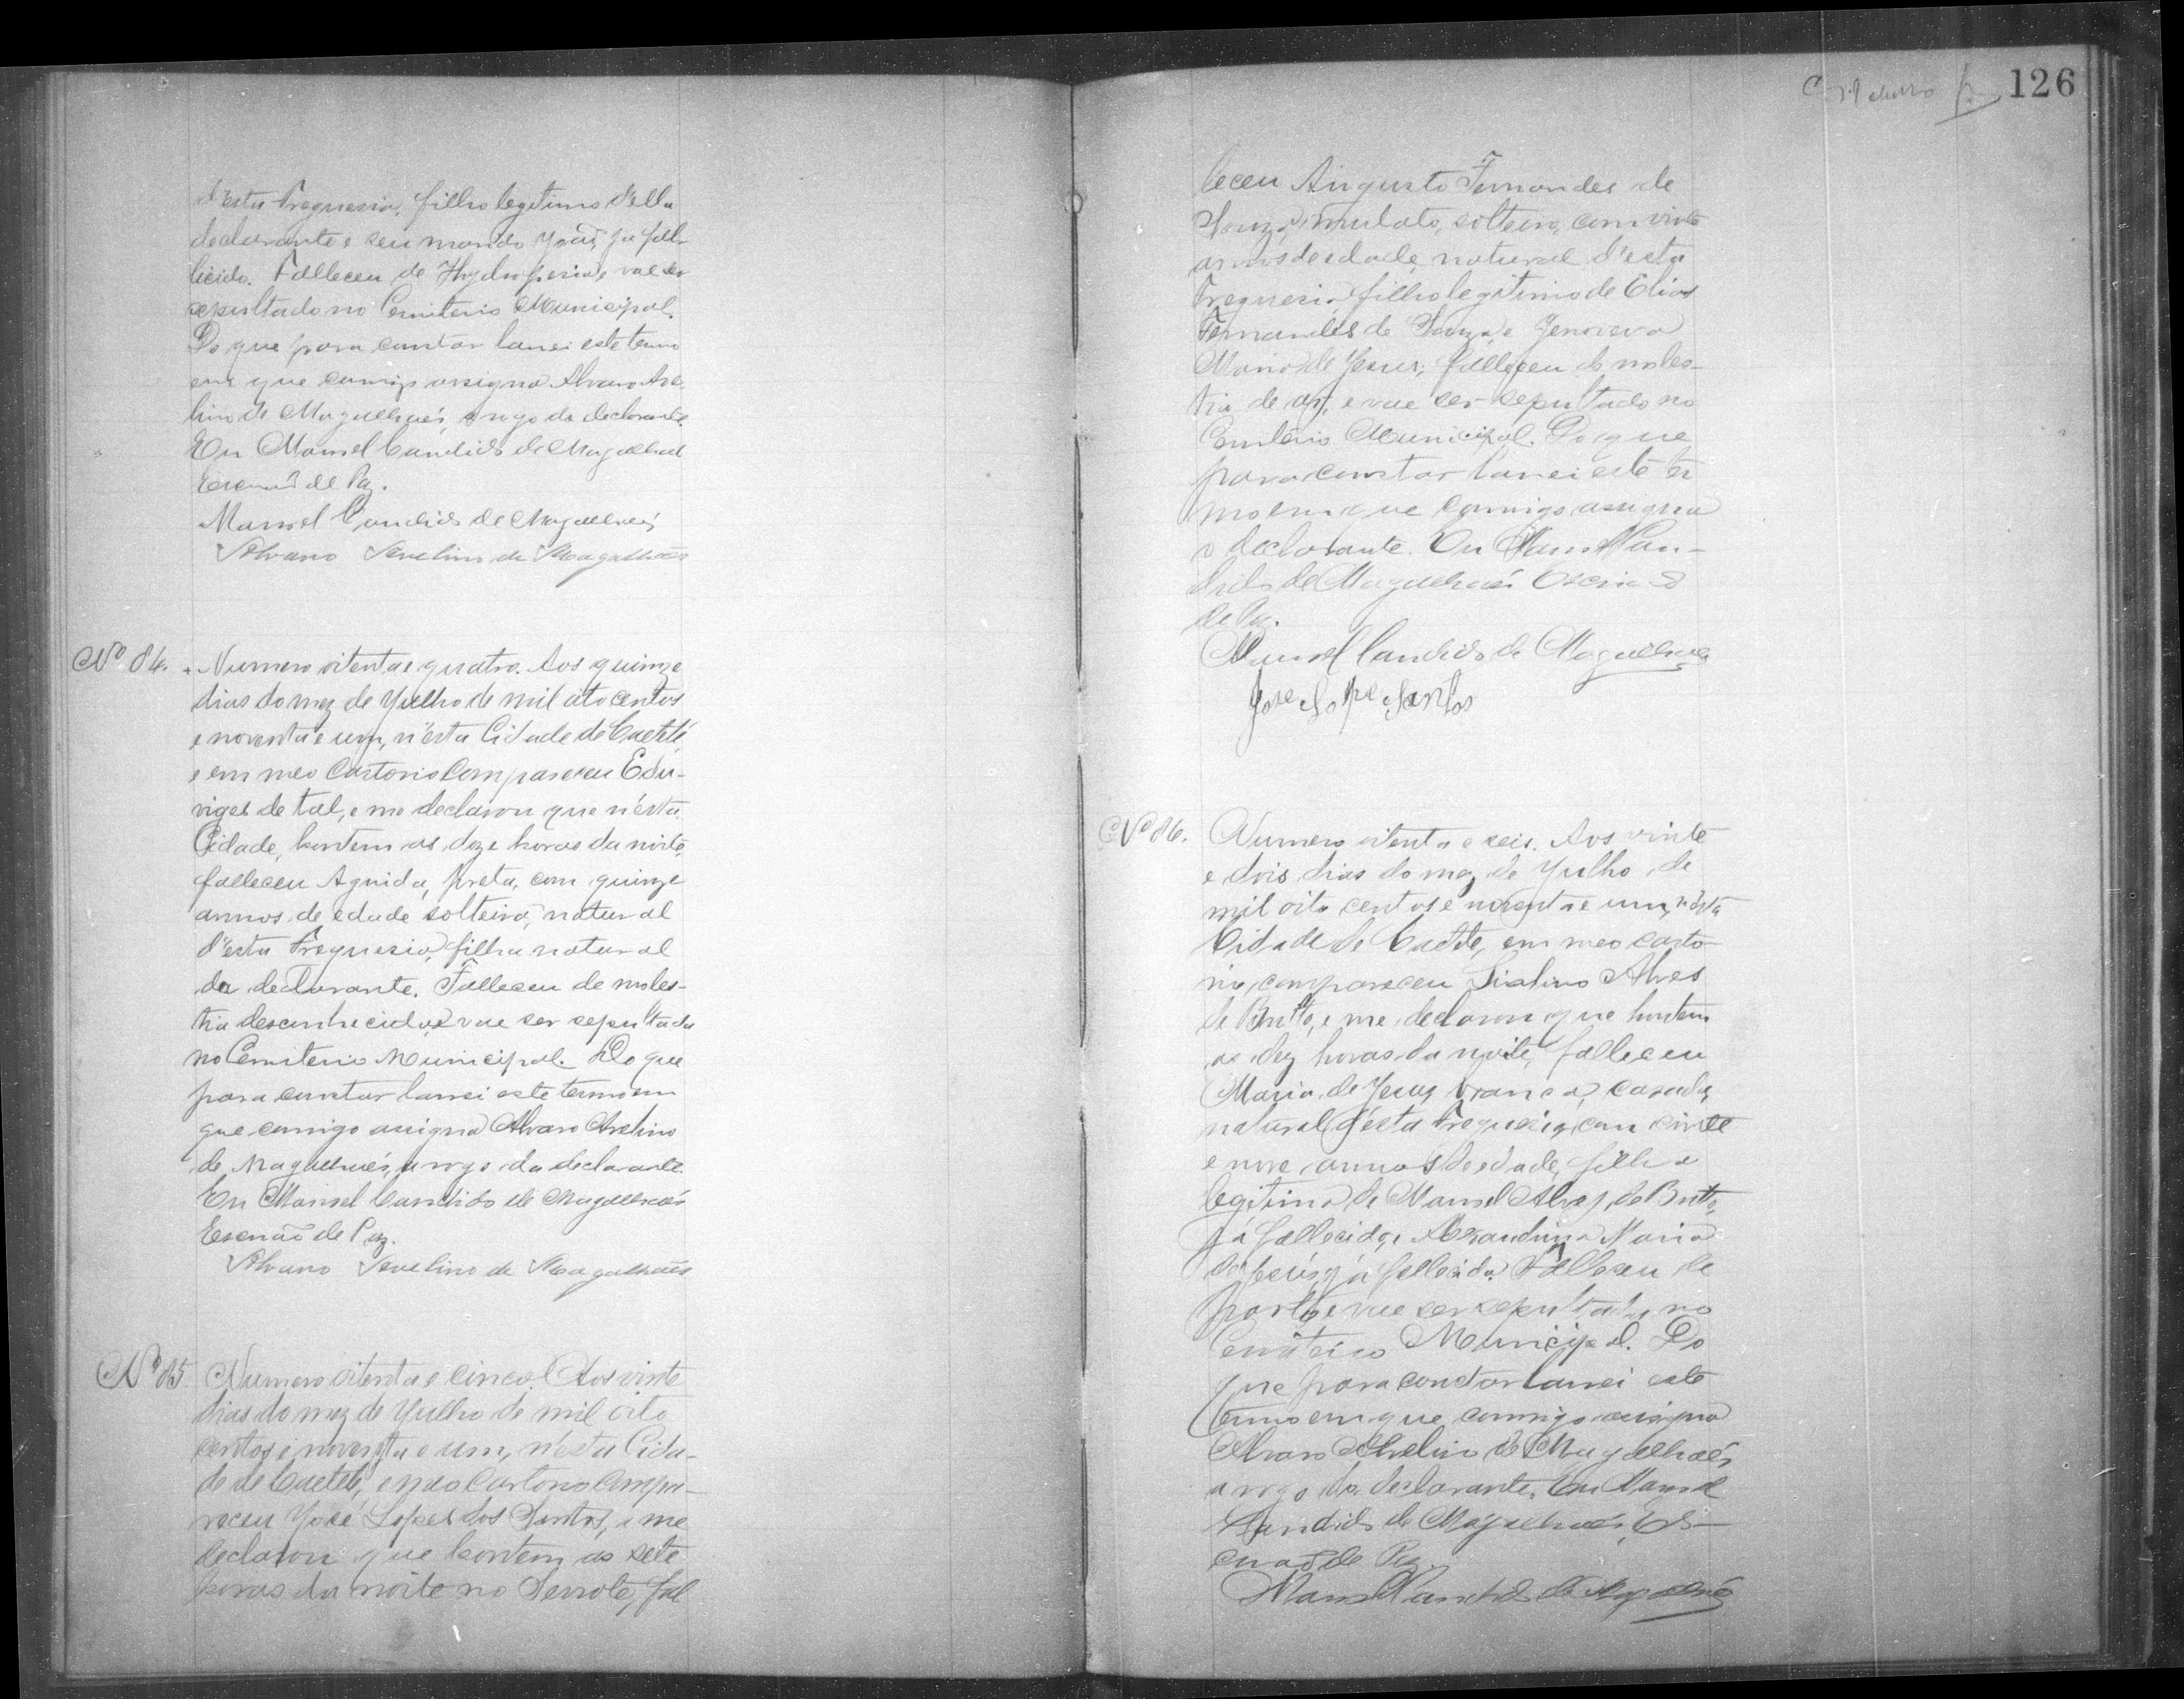 d'esta Freguesia, filho legitimo d'ella
declarante e seu marido João, ja fal-
licido. Falleceu de Hydropesia e vae ser
sepultado no Cemiterio Municipal.
Do que para constar lancei este termo
em que comigo assigna Alvaro Ave-
lino de Magalhães, a rogo da declarante.
Eu Manoel Candido de Magalhães
Escrivão de Paz.
Manoel Candido de Magalhães
Alvaro Avelino de Magalhães
Nº 84.
Numero oitenta e quatro. Aos quinze
dias do mez de Julho de mil oito centos
e noventa e um, n'esta Cidade de Caeteté,
e em meo Cartorio Compareceu Edu-
viges de tal, e me declarou que n'esta
Cidade, hontem as doze horas da noite,
falleceu Aguida, preta, com quinze
annos de edade solteira, natural
d'esta Freguesia, filha natural
da declarante. Falleceu de moles-
tia desconhecida, e vae ser sepultada
no Cemiterio Municipal. Do que
para constar lancei este termo em
que comigo assigna Alvaro Avelino
de Magalhães, a rogo da declarante.
Eu Manoel Candido de Magalhães
Escrivão de Paz.
Alvaro Avelino de Magalhães
Nº 85.
Numero oitenta e cinco. Aos vinte
dias do mez de Julho de mil oito
centos e noventa e um, n'esta Cida-
de de Caeteté, e meo Cartorio Compa-
receu José Lopes dos Santos, e me
declarou que hontem as sete
horas da noite no Serrote, fal
126
leceu Augusto Fernandes de
Souza, mulato, solteiro, com vinte
annos de edade, natural d'esta
Freguesia, filho legitimo de Elias
Fernandes de Souza, e Jenoveva
Maria de Jesus; falleceu de moles-
tia de ar, e vae ser sepultado no
Cemiterio Municipal. Do que
para constar lancei este ter
mo em que comigo assigna
o declarante. Eu Manoel Can-
dido de Magalhães Escrivão
de Paz.
Manoel Candido de Magalhães
Jose Lope Santos
Nº 86.
Numero oitenta e seis. Aos vinte
e dois dias do mez de Julho de
mil oito centos e noventa e um, n'esta
Cidade de Caeteté, em meo carto-
rio, compareceu Alves
de Britto, e me declarou que hontem
as dez horas da noite, falleceu
Maria de Jesus, branca, casada,
natural d'esta Freguesia, com vinte
e nove annos de edade, filha
legitima de Manoel Alves de Britto,
já fallecido, e Maria
de Jesus, já fallecida. Falleceu de
parto, e vae ser sepultada no
Cemiterio Municipal. Do
que para constar lancei este
termo em que comigo assigna
Alvaro Avelino de Magalhães,
a rogo do declarante. Eu Manoel
Candido de Magalhães, Es-
crivão de Paz.
Manoel Candido de Magalhães